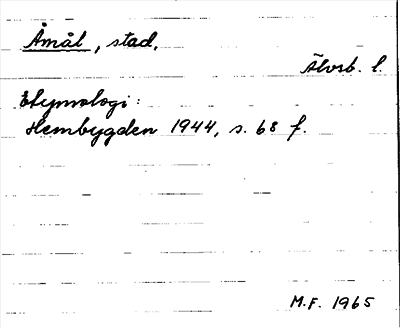 Åmål, stad.
Älvsb. l.
Etymologi:
Hembygden 1944, s. 68 f.
M.F. 1965